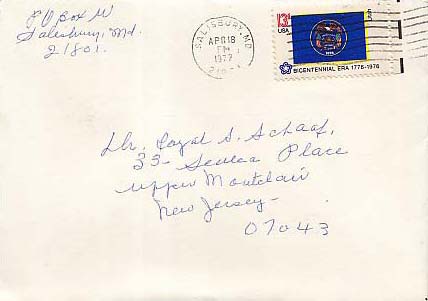 PO Box W
Salesbury, Md.
21801.
SALISBURY, MD
APR 18
PM
1977
13¢
USA
BICENTENNIAL ERA 1776-1976
Dr. Royal S. Schaaf,
33- Place
Upper Montclair
New Jersey-
07043